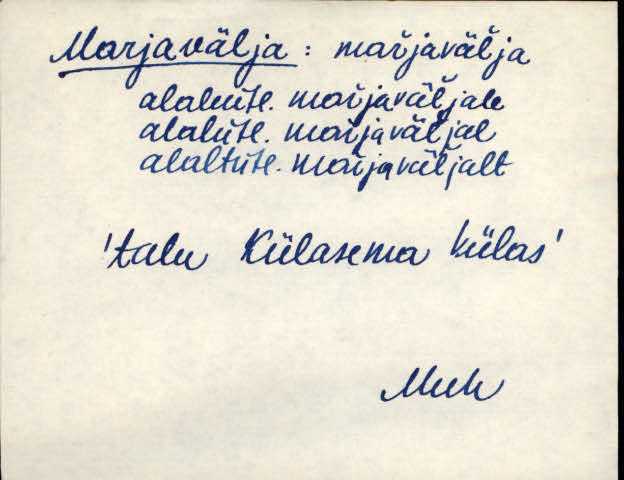 Marjavälja : mar̆javäl̆ja
alaleüt. mar̆javäl̆jale
alalüt. mar̆javäl̆jal
alaltüt. mar̆javäl̆jalt
'talu Külasema külas'
Muh